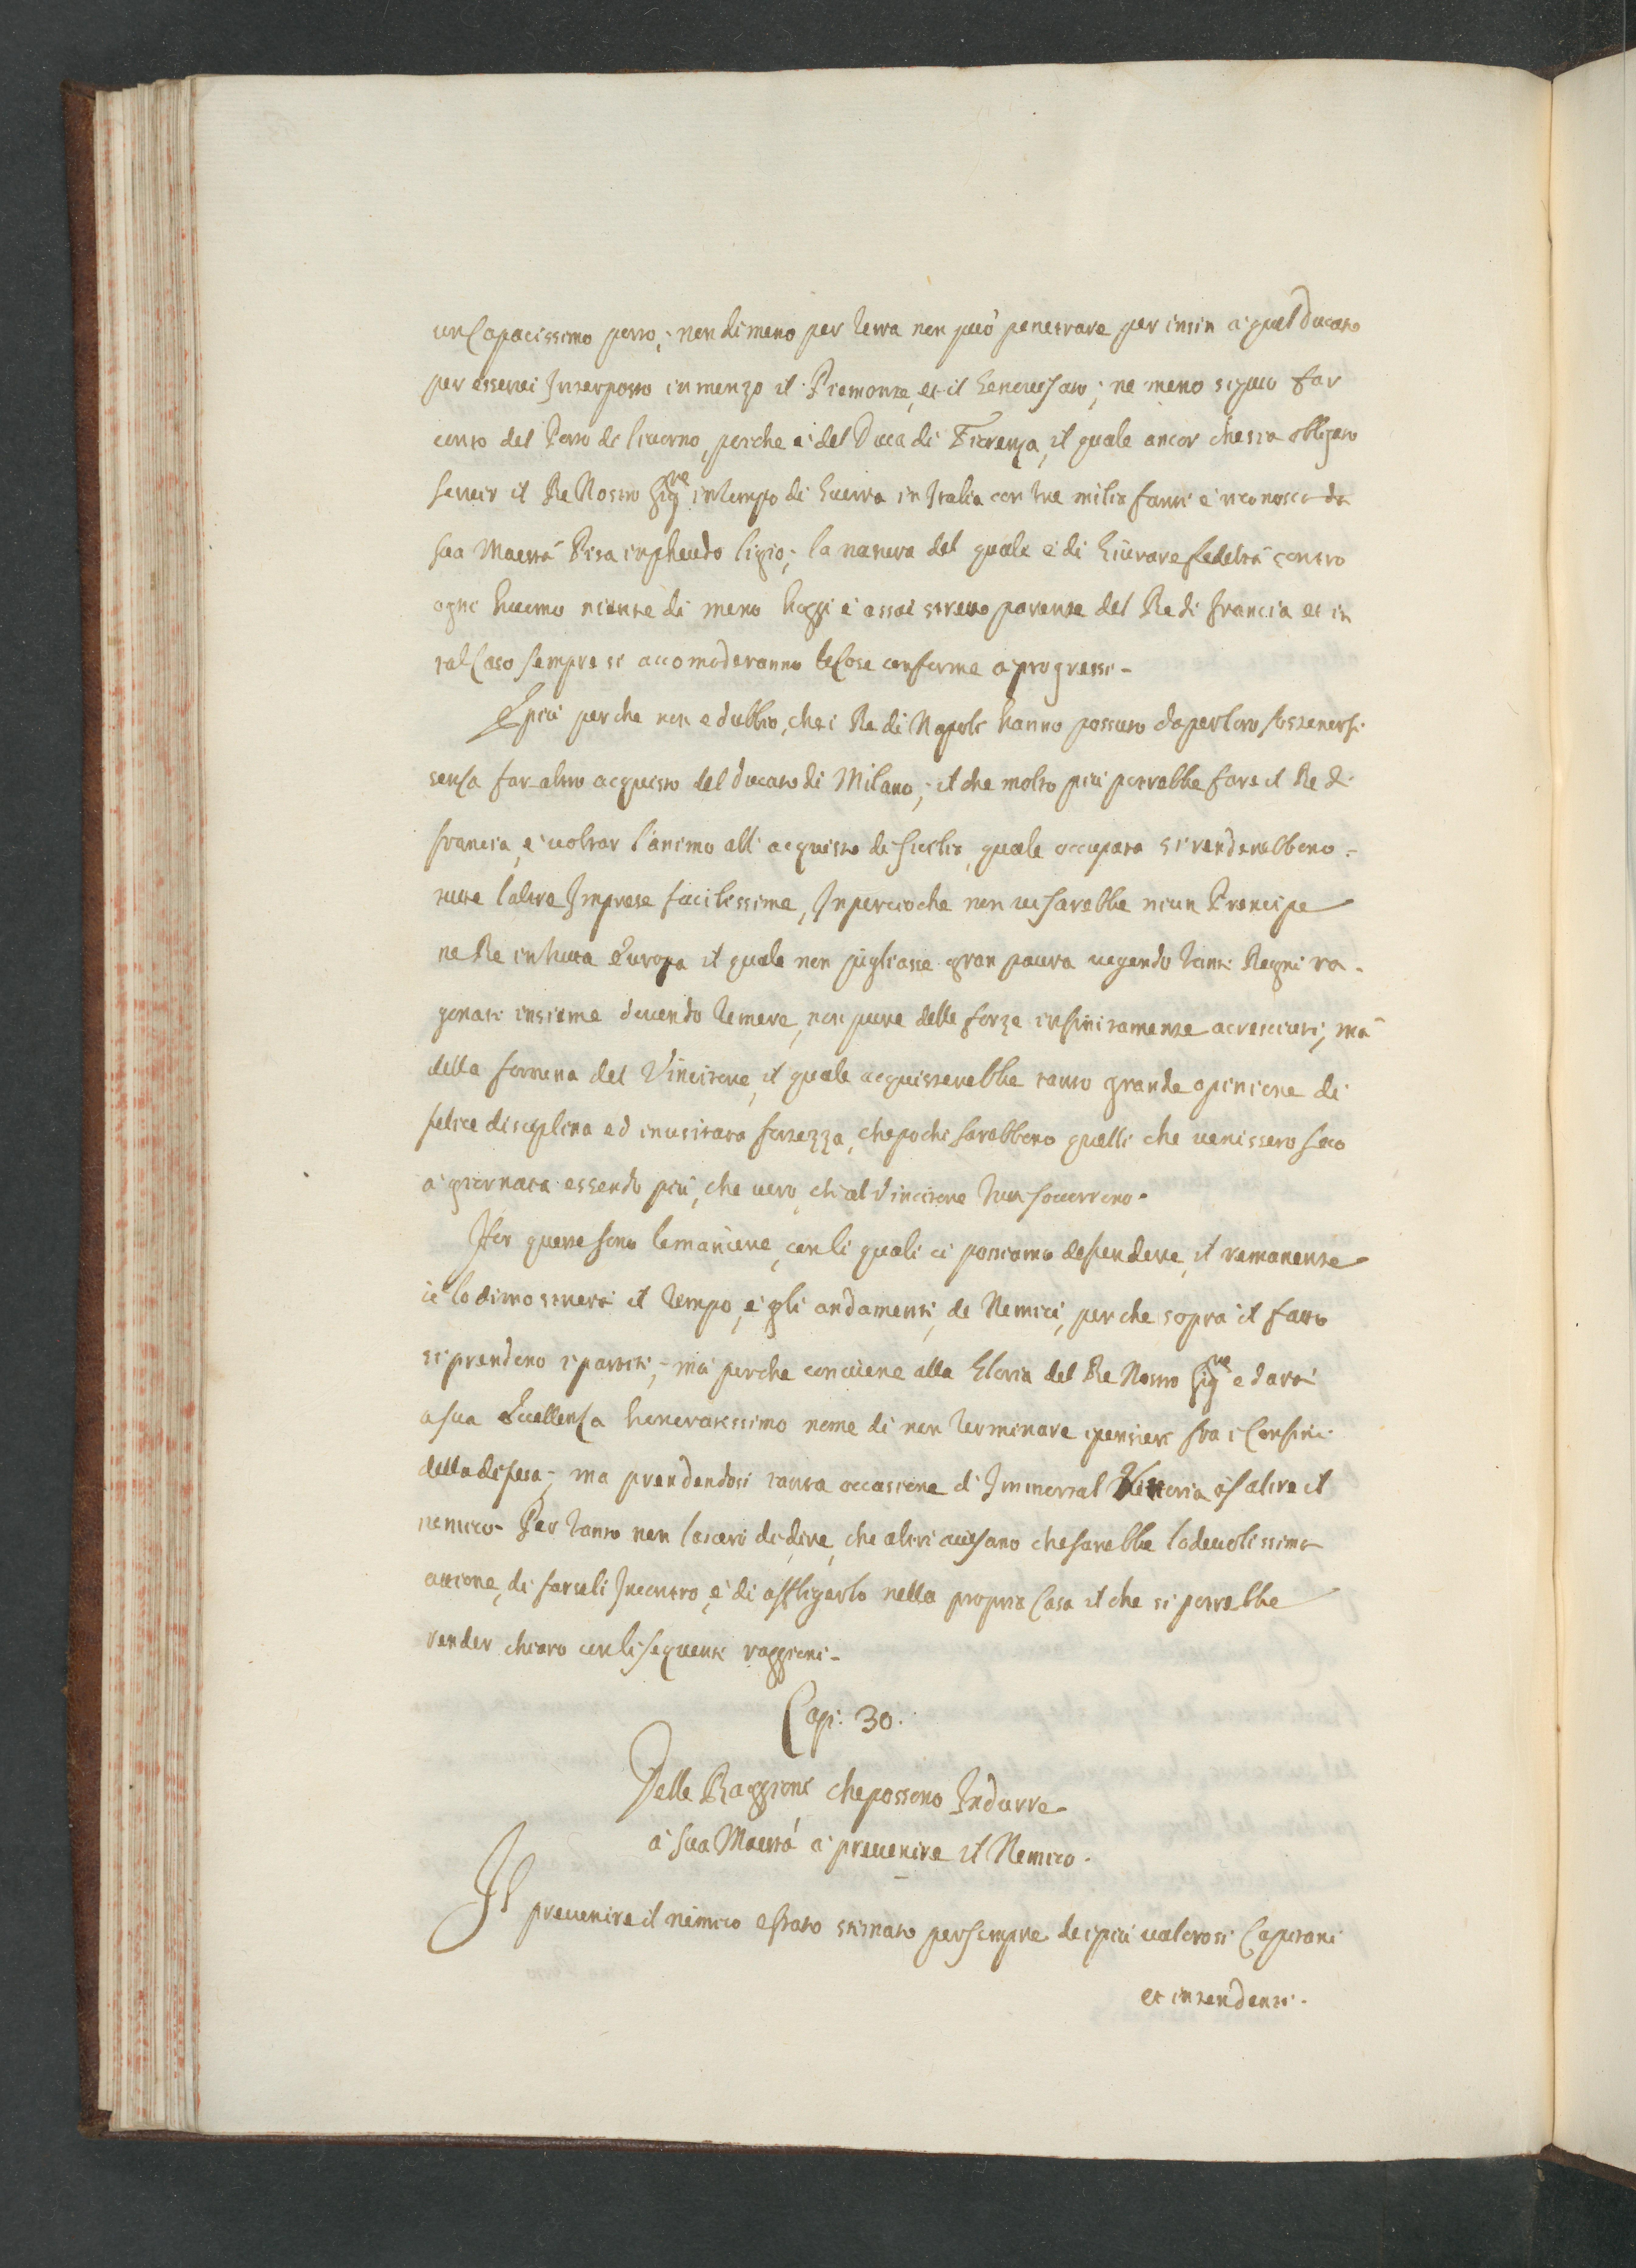 un Capacissimo porto; nondimeno per terra non può penetrare per insin a quel Ducato
per esserui Interposto in menzo il Piemonte, et il Genouesato; ne meno si può far
conto del Porto di liuorno, perche è del Duca di Fiorenza, il quale ancor che sia obligato
seruir il Re Nostro Sig.re in tempo di Guerra in Italia con tre milia fanti è riconosca da
sua Maestà Pisa in pheudo ligio; la natura del quale è di Giurare fedeltà contro
ogni huomo niente di meno hoggi è assai stretto parente del Re di francia et in
tal Caso sempre si accomoderanno le Cose conforme a progressi-
E più perche non e dubbio, che i Re di Napoli hanno possuto da per loro sostenersi
senza far altro acquisto del ducato di Milano; il che molto più potrebbe fare il Re di
francia, è uoltar l'animo all' acquisto di Sicilia, quale occupata si renderebbono-
tutte l'altre Imprese facilissime, Inpercioche non ui sarebbe niun Prencipe
ne Re in tutta Europa il quale non pigliasse gran paura uegendo tanti Regni ra-
gonati insieme douendo temere, non pure delle forze infinitamente accresciuti, mà
della fortuna del Vincitore, il quale acquisterebbe tanto grande opinione di
felice disciplina ed inusitata fortezza, che pochi sarebbono quelli che uenissero seco
a giornata essendo più, che uero, ch' al Vincitore tutti soccorrono.
Hor queste sono le maniere, con li quali ci possiamo defendere, il remanente
ce lo dimostrerà il tempo, è gli andamenti, de Nemici, perche sopra il fatto
si prendono i partiti; mà perche conuiene alla Gloria del Re Nostro Sig.re e darà
a sua Eccellenza honoratissimo nome di non terminare i pensieri fra i Confini
della difesa; ma prendendosi tanta occasione d' Immortal Vittoria assalire il
nemico. Per tanto non lascerò di dire, che altri auisano che sarebbe lodeuolissima
attione, di farseli Incontro, è di affligerlo nella propria Casa il che si potrebbe
render chiaro con li sequenti raggioni-
Cap: 30.
Delle Raggioni che possono Indurre
à sua Maestà à preuenire il Nemico.
Il preuenire il nemico e stato stimato per sempre dei più ualorosi Capitani
et intendenti.